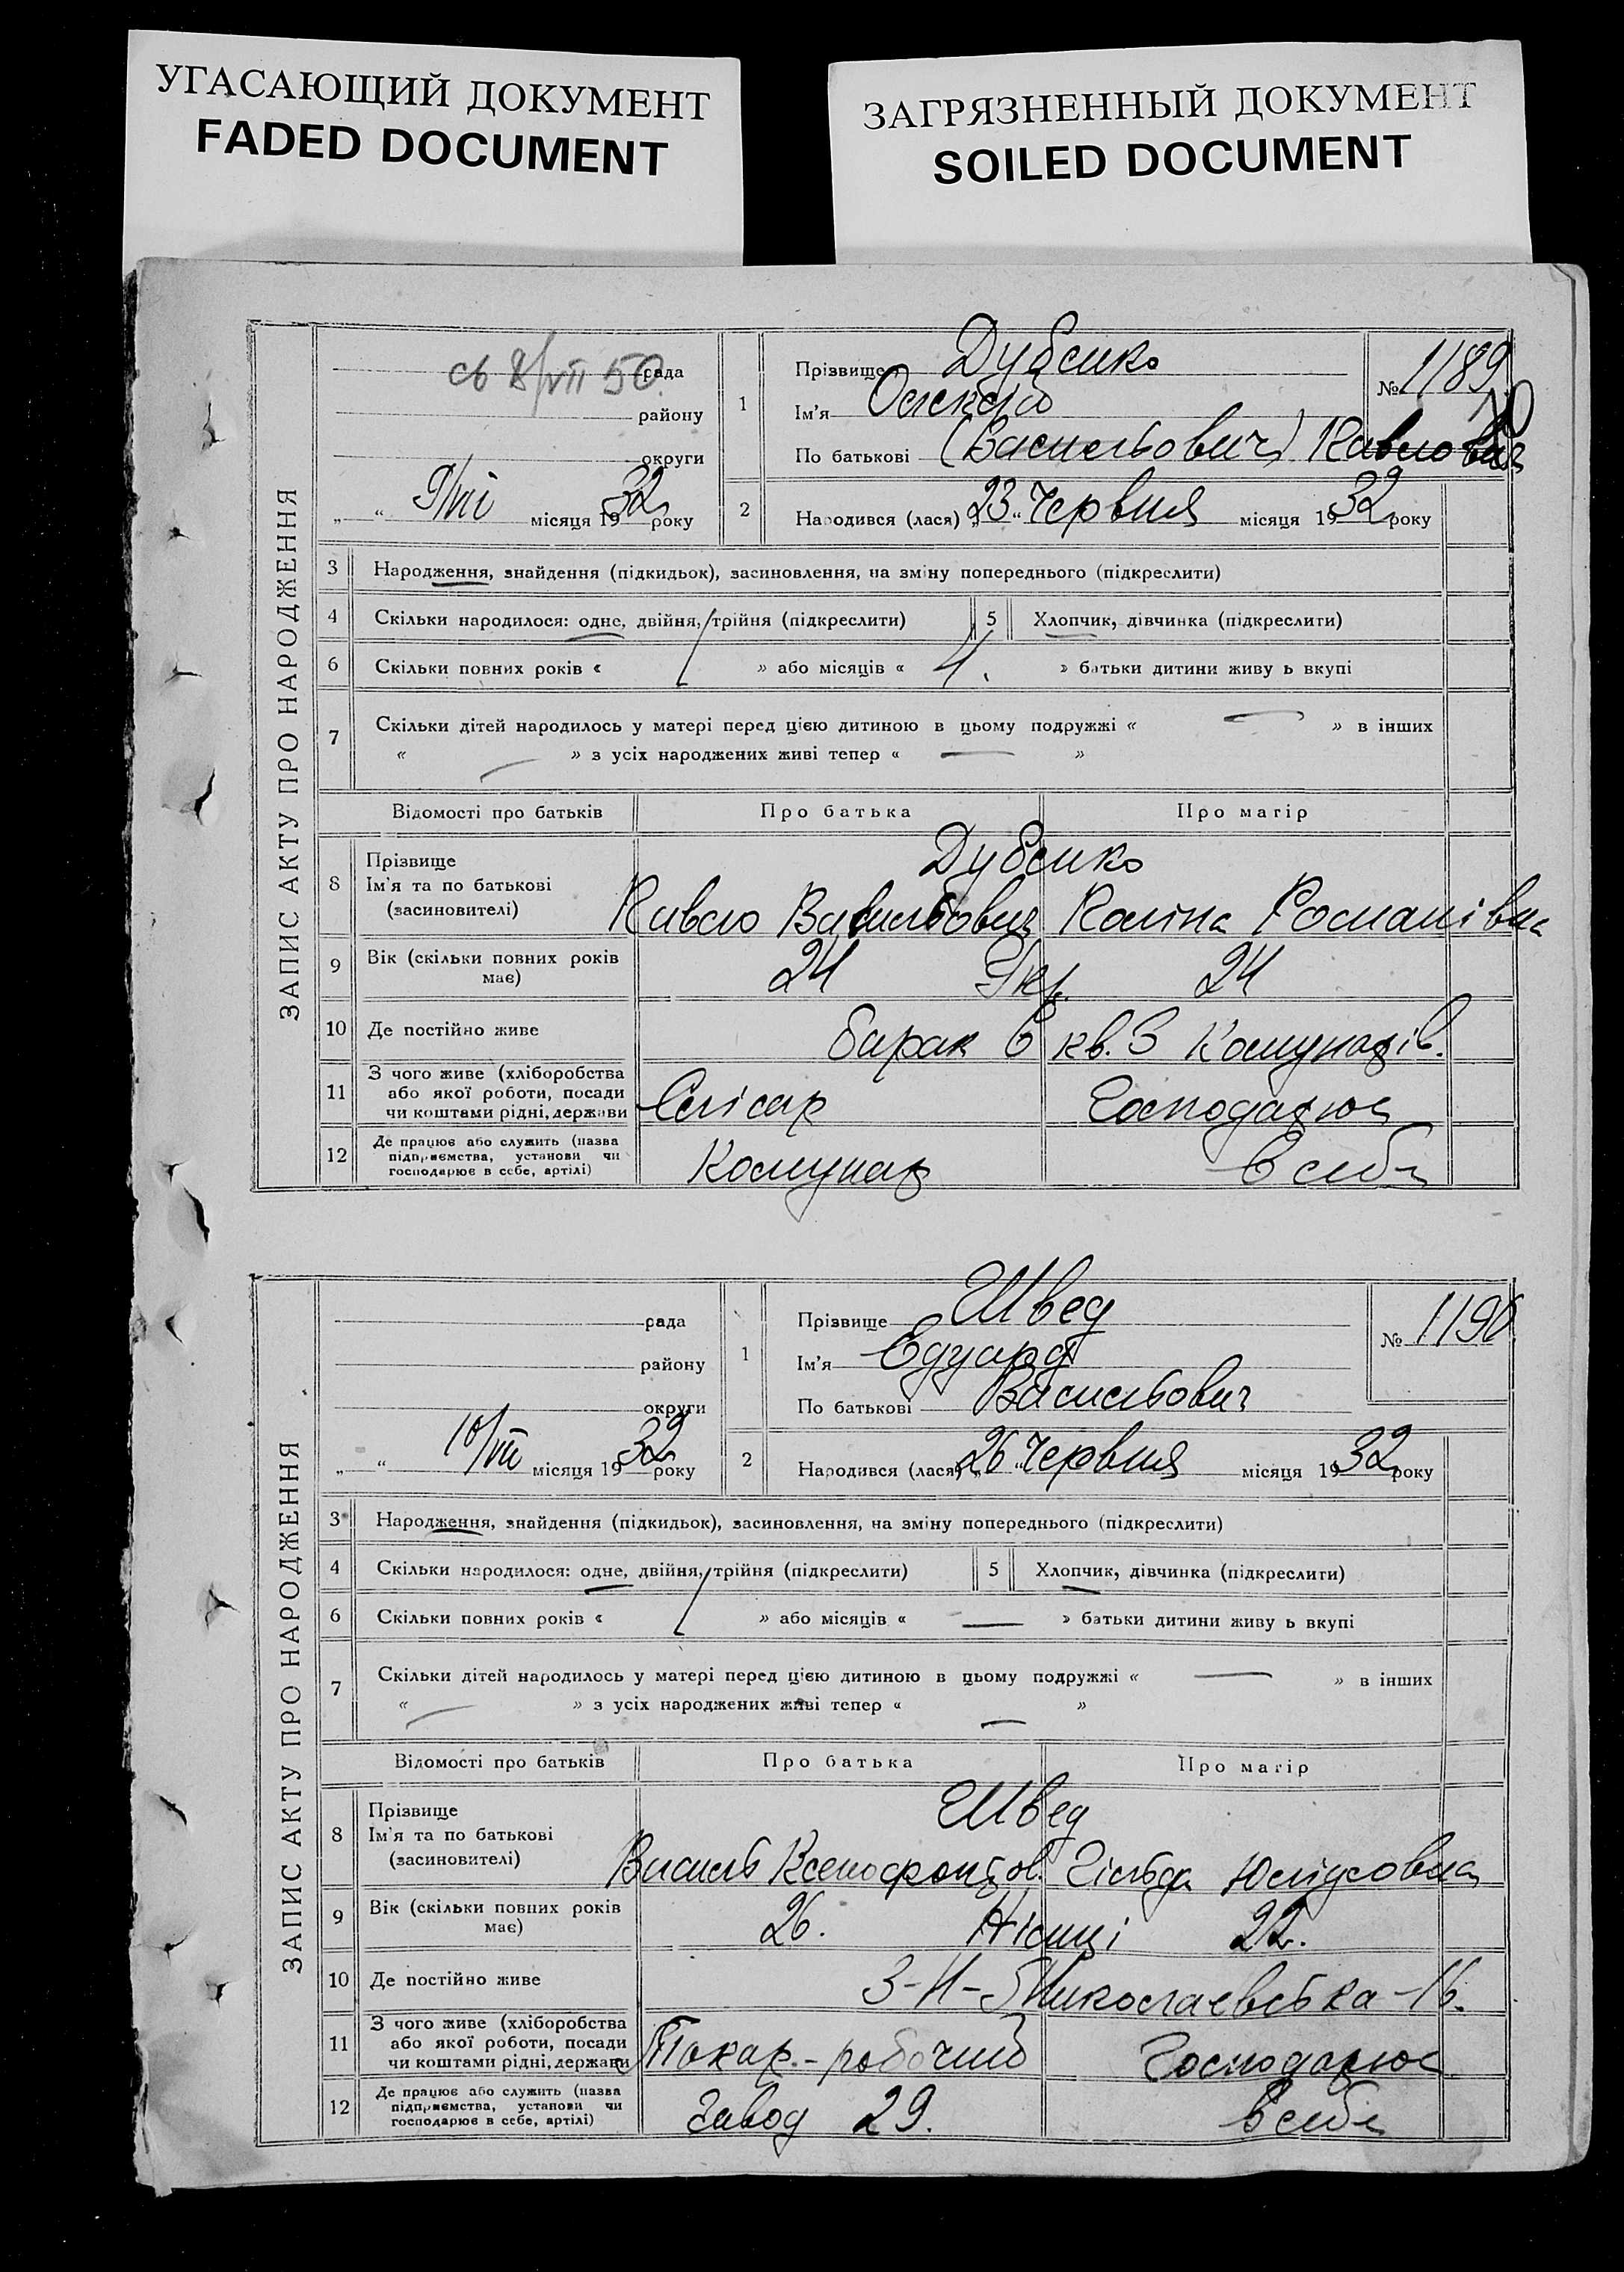 УГАСАЮЩИЙ ДОКУМЕНТ
FADED DOCUMENT
ЗАГРЯЗНЕННЫЙ ДОКУМЕНТ
SOILED DOCUMENT
ЗАПИС АКТУ ПРО НАРОДЖЕННЯ
св 8/VII 50 рада
району
округи
„ “ 9/VII місяця 1932 року
1 Прізвище Дубенко
Ім'я Олексій
По батькові (Васильович) Павлович
№ 1189
2 Народився (лася) „23“ Червня місяця 1932 року
3 Народження, знайдення (підкидьок), засиновлення, на зміну попереднього (підкреслити)
4 Скільки народилося: одне, двійня, трійня (підкреслити) 5 Хлопчик, дівчинка (підкреслити)
6 Скільки повних років « » або місяців « 4. » батьки дитини живу ь вкупі
7 Скільки дітей народилось у матері перед цією дитиною в цьому подружжі « — » в інших
« — » з усіх народжених живі тепер « — »
Відомості про батьків Про батька Про матір
8 Прізвище Дубенко
Ім'я та по батькові Павло Васильович
(засновителі) Романівна
9 Вік (скільки повних років має) 24 Укр. 24
10 Де постійно живе барак 6 кв. 3 Комунарів.
11 З чого живе (хліборобства або якої роботи, посади чи коштами рідні, держави Слісар Господарює
12 Де працює або служить (назва підприємства, установи чи господарює в себе, артілі) Комунар в себе
ЗАПИС АКТУ ПРО НАРОДЖЕННЯ
рада
району
округи
„ “ 10/VII місяця 1932 року
1 Прізвище Швед
Ім'я Едуард
По батькові Васильович
№ 1190
2 Народився (лася) „26“ Червня місяця 1932 року
3 Народження, знайдення (підкидьок), засиновлення, на зміну попереднього (підкреслити)
4 Скільки народилося: одне, двійня, трійня (підкреслити) 5 Хлопчик, дівчинка (підкреслити)
6 Скільки повних років « » або місяців « — » батьки дитини живу ь вкупі
7 Скільки дітей народилось у матері перед цією дитиною в цьому подружжі « — » в інших
« — » з усіх народжених живі тепер « — »
Відомості про батьків Про батька Про матір
8 Прізвище Швед
Ім'я та по батькові Василь Ксенофонтов. Гільда Юлиусовна
(засиновителі)
9 Вік (скільки повних років має) 26. Німці 22.
10 Де постійно живе 3-Н-Николаевська-16.
11 З чого живе (хліборобства або якої роботи, посади чи коштами рідні, держави Токар.-робочий Господарює
12 Де працює або служить (назва підприємства, установи чи господарює в себе, артілі) Завод 29. в себе